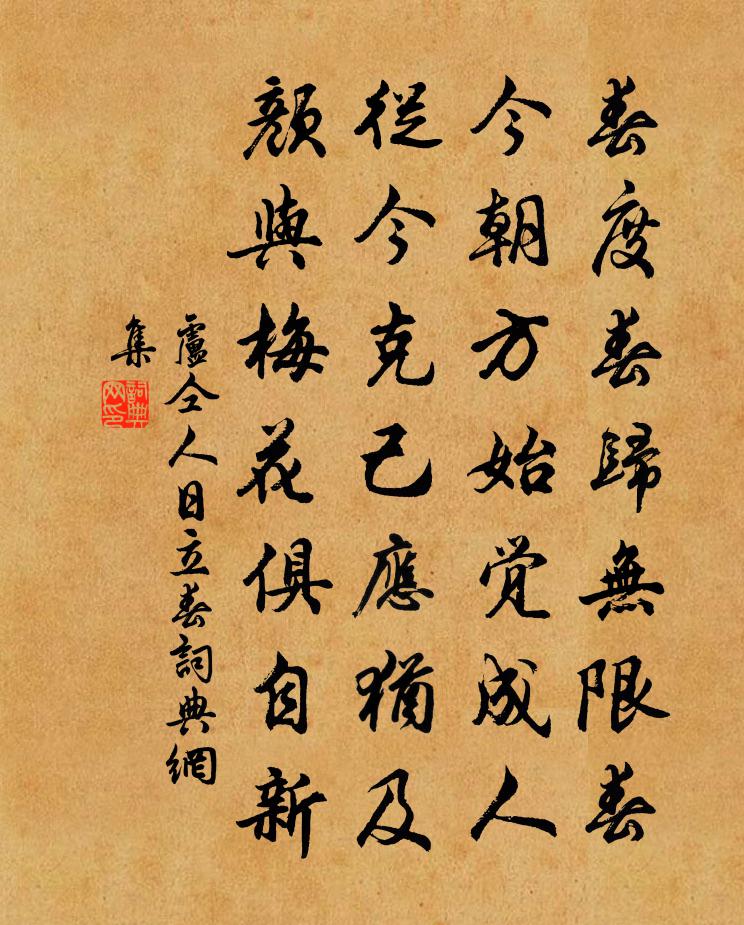 春度春歸無限春
今朝方始覺成人
從今克己應猶及
顏與梅花俱自新
盧仝人日立春詞典網
集
詞典網印